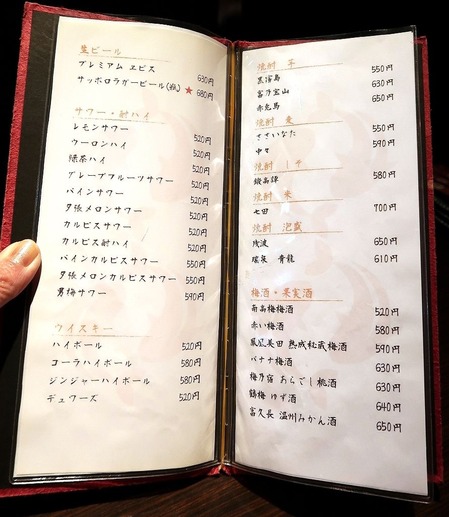 生ビール
プレミアム ヱビス 630円
サッポロラガービール(瓶) ★ 680円
サワー・酎ハイ
レモンサワー 520円
ウーロンハイ 520円
緑茶ハイ 520円
グレープフルーツサワー 520円
パインサワー 520円
夕張メロンサワー 520円
カルピスサワー 520円
カルピス酎ハイ 520円
パインカルピスサワー 550円
夕張メロンカルピスサワー 550円
男梅サワー 590円
ウイスキー
ハイボール 520円
コーラハイボール 580円
ジンジャーハイボール 580円
デュワーズ 520円
焼酎 芋
黒霧島 550円
富乃宝山 630円
赤兎馬 650円
焼酎 麦
ささいなた 550円
中々 590円
焼酎
鍛高譚 580円
焼酎 米
七田 700円
焼酎 泡盛
残波 650円
瑞泉 青龍 610円
梅酒・果実酒
南高梅梅酒 520円
赤い梅酒 580円
鳳凰美田 熟成秘蔵梅酒 590円
バナナ梅酒 630円
梅乃宿 あらごし桃酒 630円
鶴梅 ゆず酒 640円
富久長 温州みかん酒 650円